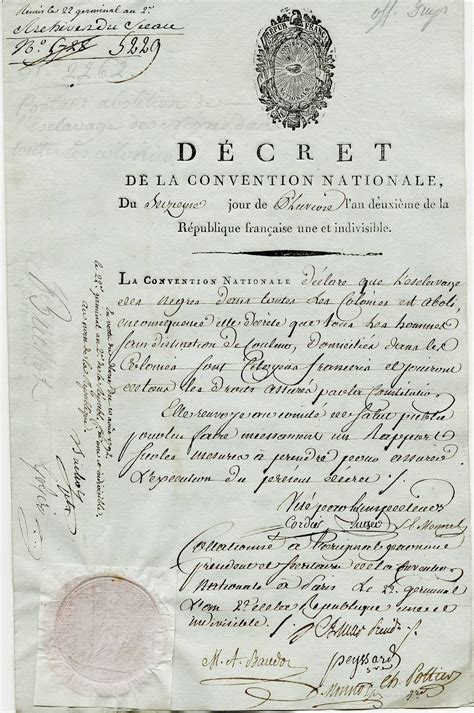 Remis le 22 germinal au 2e
Archives du Sceau
No. 5229
2262
Portant abolition de
l'Esclavage des Nègres dans
toutes les colonies
RÉPUB FRANÇ
NATIONALE
DÉCRET
DE LA CONVENTION NATIONALE,
Du Seizieme jour de Pluviose l'an deuxième de la
République française une et indivisible.
LA CONVENTION NATIONALE déclare que l'esclavage
des negres dans toutes les Colonies est aboli,
en consequence elle decrete que tous les hommes
sans distinction de Couleur, domiciliés dans les
Colonies sont Citoyens francois et jouiront
de tous les droits assurés par la Constitution
Elle renvoye au comité de Salut public
pour lui faire incessamment un Rapport
sur les mesures à prendre pour assurer
l'execution du present decret.
Visé par les inspecteurs
Cordier S. E. Monnel
Collationné à l'original par nous
president et Secretaire de la Convention
Nationale à Paris le 22 germinal
l'an 2e de la Republique une et
indivisible.
M. A. Baudot
peyssard
Ch. Pottier